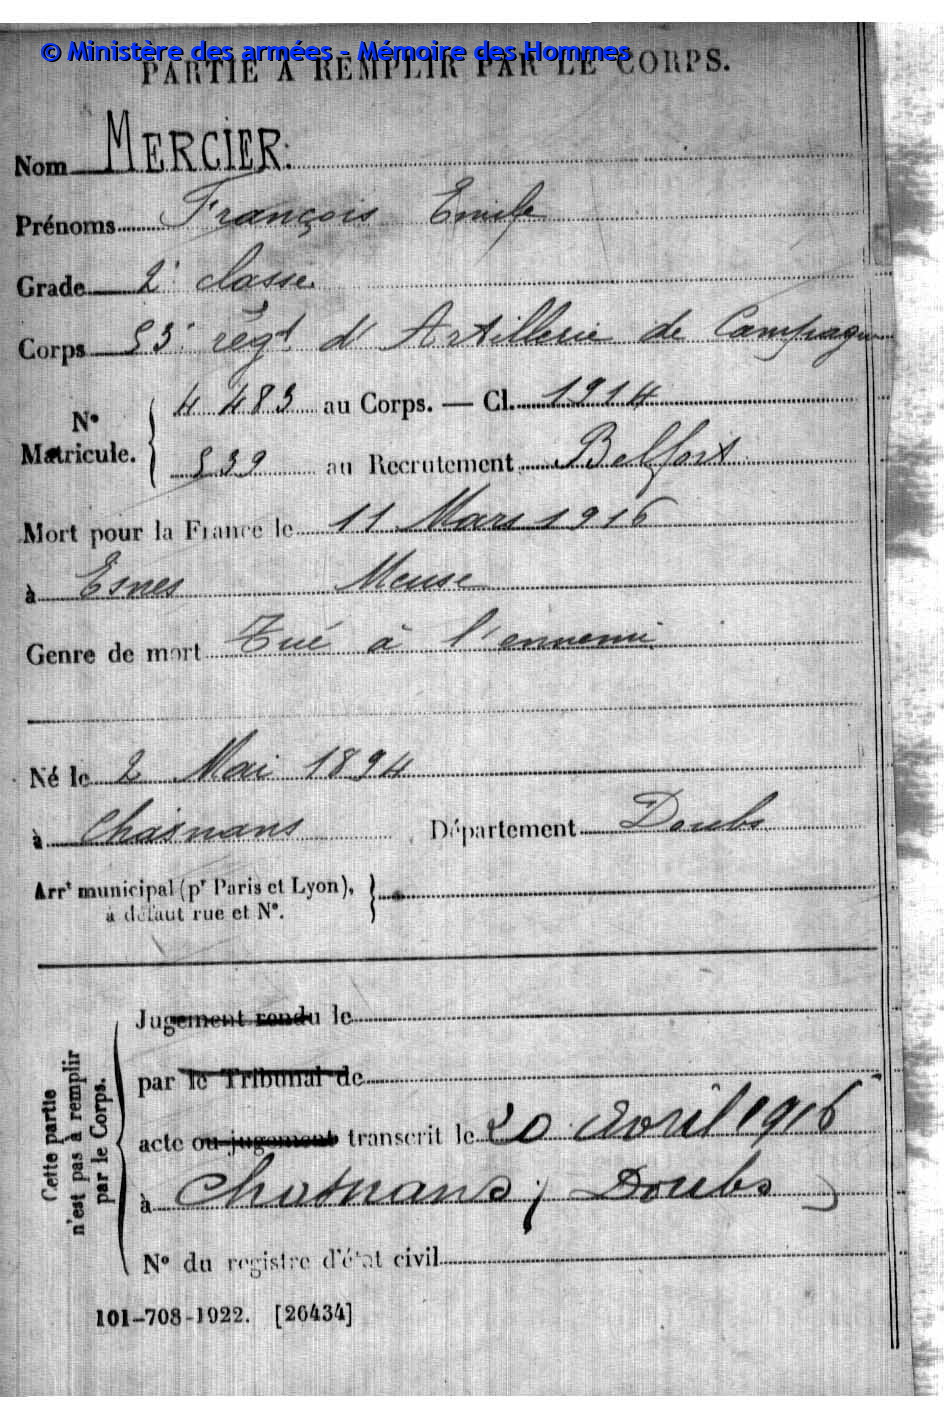 © Ministère des armées - Mémoire des Hommes
PARTIE A REMPLIR PAR LE CORPS.
Nom MERCIER.
Prénoms François Emile
Grade 2e classe
Corps 53e régt d'Artillerie de Campagne
No Matricule. { 4483 au Corps. — Cl. 1914
539 au Recrutement Belfort
Mort pour la France le 11 Mars 1916
à Esnes Meuse
Genre de mort Tué à l'ennemi
Né le 2 Mai 1894
à Chasnans Département Doubs
Arrt municipal (pr Paris et Lyon),
à défaut rue et No.
Cette partie n'est pas à remplir par le Corps.
Jugement rendu le
par le Tribunal de
acte ou jugement transcrit le 20 Avril 1916
à Chasnans (Doubs)
No du registre d'état civil
101-708-1922. [26434]